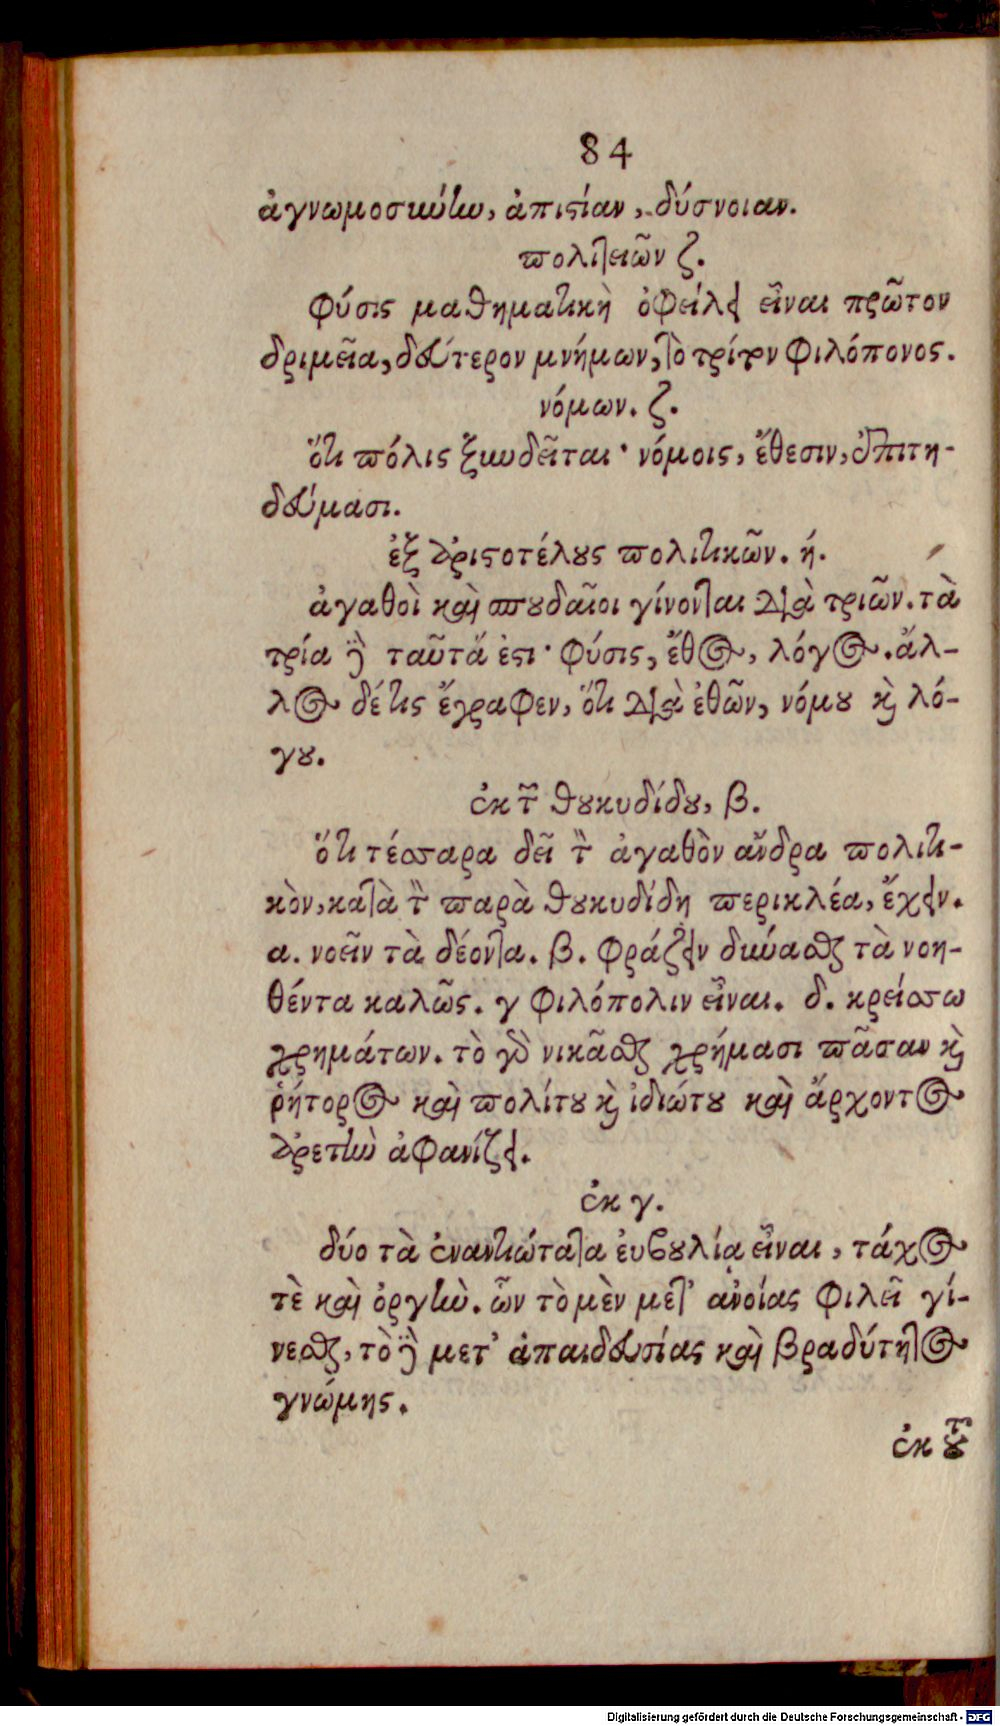 84
ἀγνωμοσύνην, ἀπιστίαν, δύσνοιαν.
πολιτειῶν ζ.
φύσις μαθηματικὴ ὀφείλει εἶναι πρῶτον
δριμεῖα, δεύτερον μνήμων, τὸ τρίτον φιλόπονος.
νόμων. ζ.
ὅτι πόλις ξυνδεῖται· νόμοις, ἔθεσιν, ἐπιτη-
δεύμασι.
ἐξ ἀριστοτέλους πολιτικῶν. ή.
ἀγαθοὶ καὶ σπουδαῖοι γίνονται διὰ τριῶν. τὰ
τρία δὲ ταῦτά ἐστι· φύσις, ἔθος, λόγος. ἄλ-
λος δέ τις ἔγραφεν, ὅτι διὰ ἐθῶν, νόμου καὶ λό-
γου.
ἐκ τῶν θουκυδίδου, β.
ὅτι τέσσαρα δεῖ τὸν ἀγαθὸν ἄνδρα πολιτι-
κὸν, κατὰ τὸν παρὰ θουκυδίδη περικλέα, ἔχειν.
α. νοεῖν τὰ δέοντα. β. φράζειν δύνασθαι τὰ νοη-
θέντα καλῶς. γ φιλόπολιν εἶναι. δ. κρείσσω
χρημάτων. τὸ γὰρ νικᾶσθαι χρήμασι πᾶσαν καὶ
ῥήτορος καὶ πολίτου καὶ ἰδιώτου καὶ ἄρχοντος
ἀρετὴν ἀφανίζει.
ἐκ γ.
δύο τὰ ἐναντιώτατα ἐυβουλίᾳ εἶναι, τάχος
τὲ καὶ ὀργὴν. ὧν τὸ μὲν μετ' ἀνοίας φιλεῖ γί-
νεσθαι, τὸ δὲ μετ' ἀπαιδευσίας καὶ βραδύτητος
γνώμης.
ἐκ τοῦ
Digitalisierung gefördert durch die Deutsche Forschungsgemeinschaft - DFG